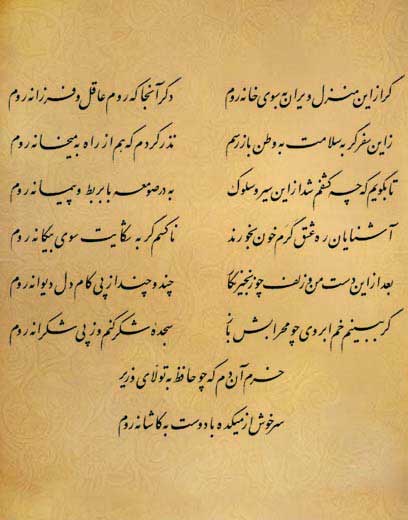 گر ازین منزل ویران به سوی خانه روم دگر آنجا که روم عاقل و فرزانه روم
زین سفر گر به سلامت به وطن باز رسم نذر کردم که هم از راه به میخانه روم
تا بگویم که چه کشفم شد ازین سیر و سلوک به در صومعه با بربط و پیمانه روم
آشنایان ره عشق گرم خون بخورند ناکسم گر به شکایت سوی بیگانه روم
بعد ازین دست من و زلف چو زنجیر نگار چند و چند از پی کام دل دیوانه روم
گر ببینم خم ابروی چو محرابش باز سجده شکر کنم وز پی شکرانه روم
خرم آن دم که چو حافظ به تولای وزیر
سرخوش از میکده با دوست به کاشانه روم